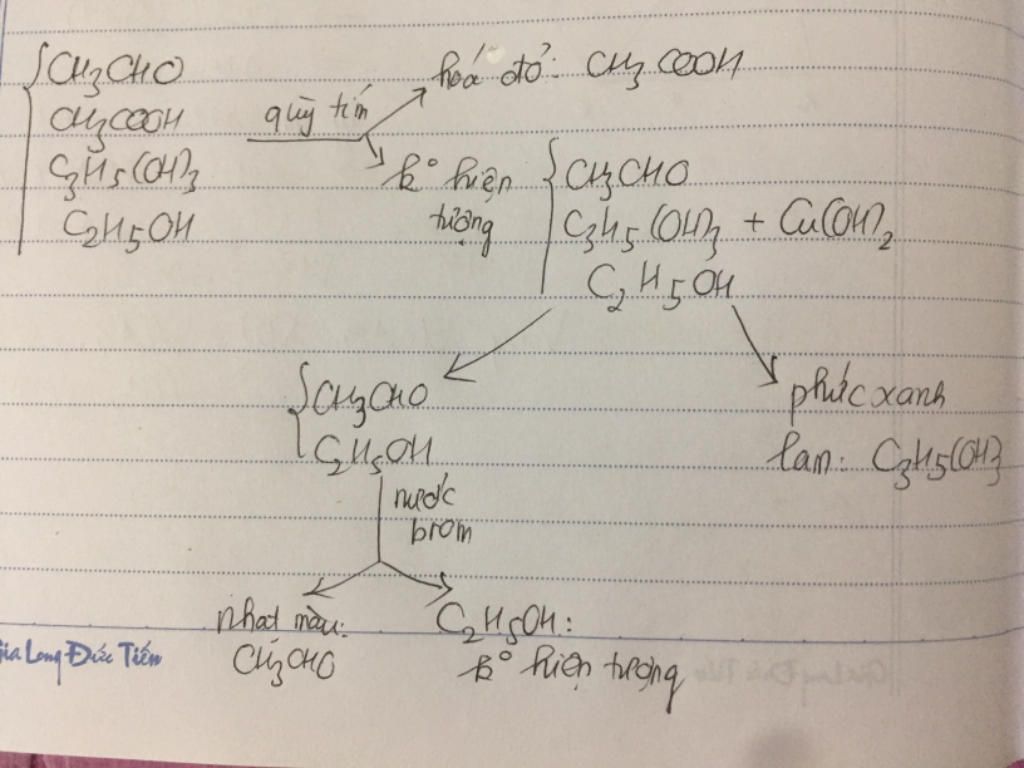 CH3CHO
CH3COOH
C3H5(OH)3
C2H5OH
quỳ tím
hoá đỏ: CH3COOH
k° hiện
tượng
CH3CHO
C3H5(OH)3 + Cu(OH)2
C2H5OH
CH3CHO
C2H5OH
phức xanh
lam: C3H5(OH)3
nước
brom
nhạt màu:
CH3CHO
C2H5OH:
k° hiện tượng
Gia Long Đức Tiến